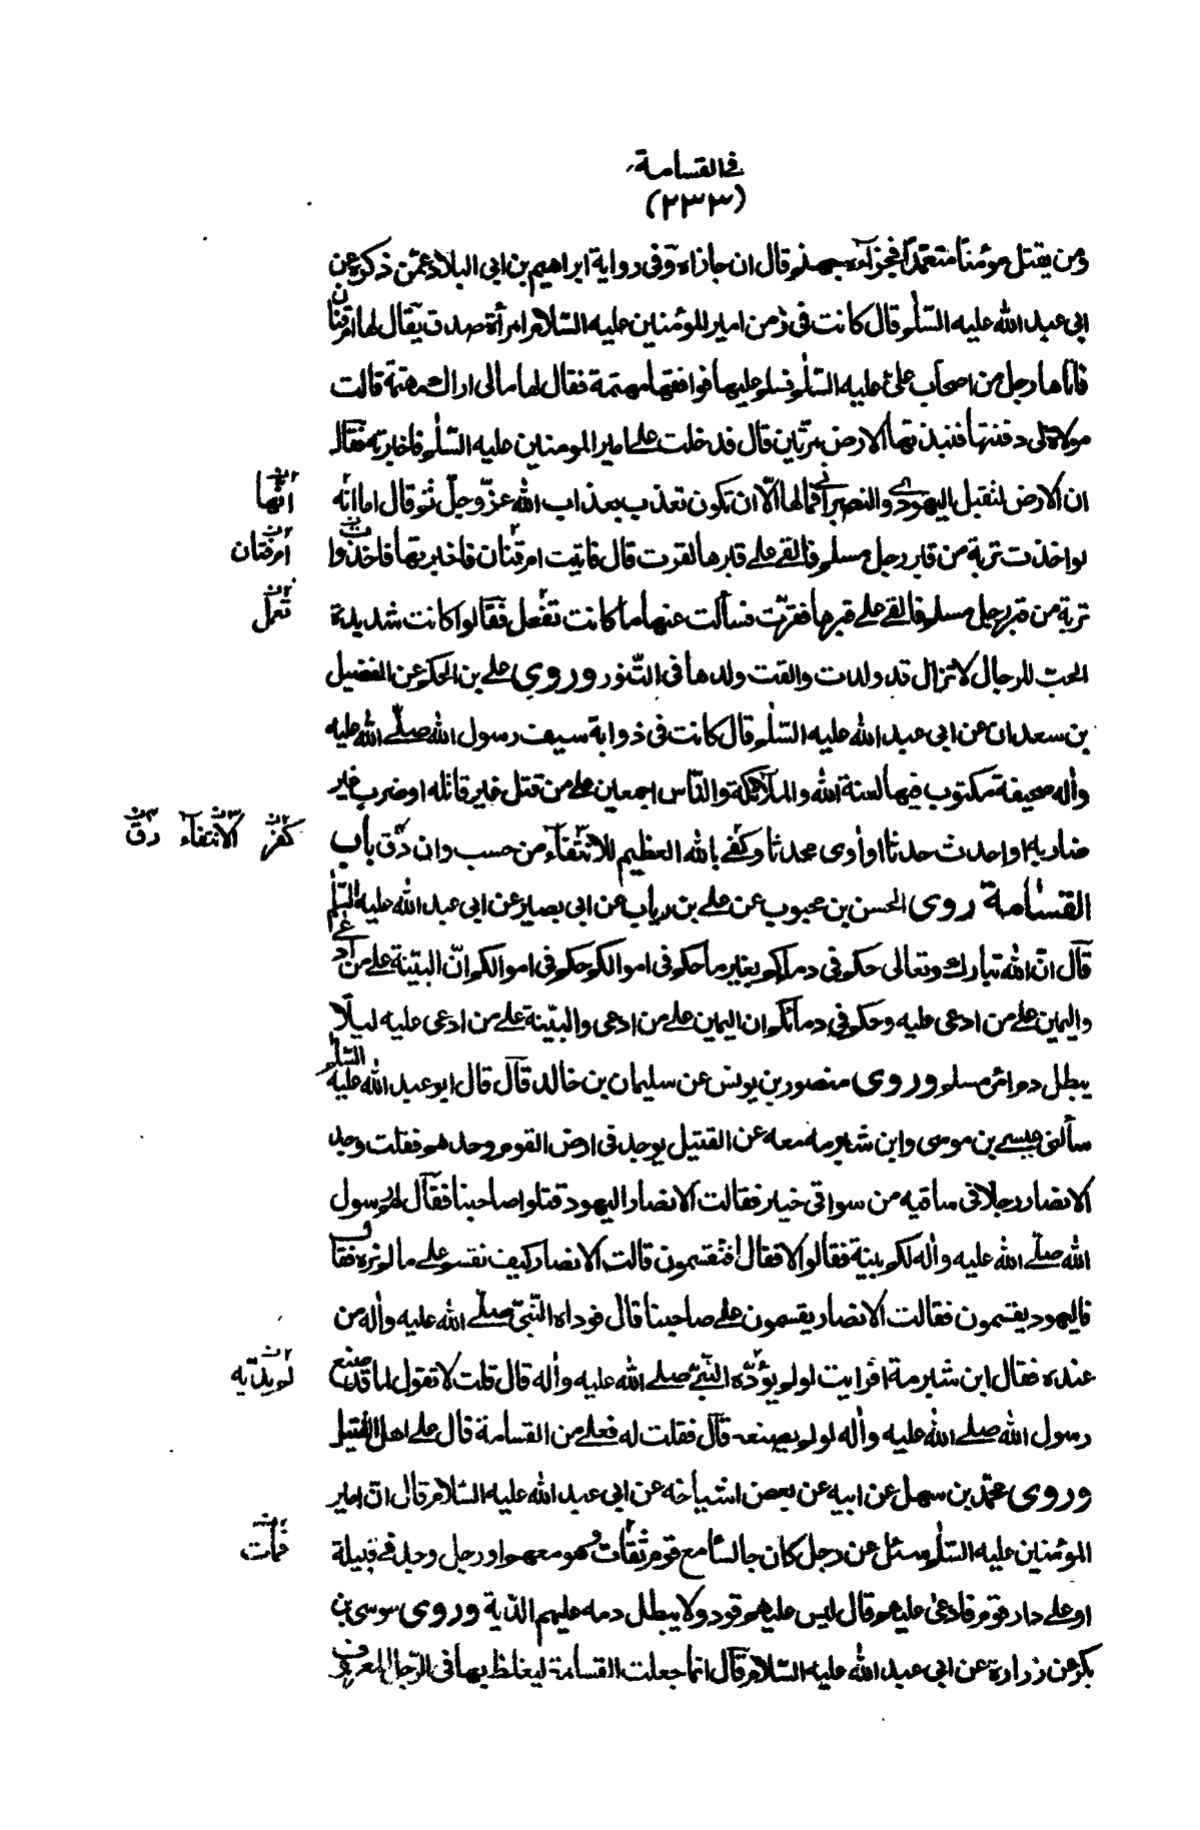 في القسامة
(٢٣٣)
ومن يقتل مؤمنا متعمدا فجزآءه جهنم قال ان جازاه وفى رواية ابراهيم بن ابى البلاد عمّن ذكره عن
ابى عبد الله عليه السّلم قال كانت فى زمن امير المؤمنين عليه السّلام امرأة صدق يقال لها ام قنان
فاتاها رجل من اصحاب علىّ عليه السّلم فسلم عليها فوافقها مهتمة فقال لها مالى اراك مهتمة قالت
مولاة لى دفنتها فنبذتها الارض مرّتين قال فدخلت على امير المومنين عليه السّلم فاخبرته فقال
ان الارض لتقبل اليهودى والنصرانى فمالها الّا ان تكون تعذب بعذاب الله عزّ وجلّ ثم قال اما انّه
انّها
لو اخذت تربة من قبر رجل مسلم فالقى على قبرها لقرت قال فاتيت ام قنان فاخبرتها فاخذوا
ام فتان
تربة من قبر رجل مسلم فالقى على قبرها فقرّت فسألت عنها ما كانت تفعل فقالوا كانت شديدة
تعمل
الحبّ للرجال لا تزال قد ولدت والقت ولدها فى التّنور وروى على بن الحكم عن الفضيل
بن سعدان عن ابى عبد الله عليه السّلم قال كانت فى ذوابة سيف رسول الله صلّى الله عليه
واٰله صحيفة مكتوب فيها لعنة الله والملآئكة والنّاس اجمعين على من قتل غير قاتله او ضرب غير
ضاربه او احدث حدثا او اٰوى محدثا وكفى بالله العظيم للانتفآء من حسب وان دقّ باب
كفر الانتفآء رق
القسامة روى الحسن بن محبوب عن على بن رياب عن ابى بصير عن ابى عبد الله عليه السّلم
قال انّ الله تبارك وتعالى حكم فى دمآئكم بغير ما حكم فى اموالكم حكم فى اموالكم انّ البيّنة على من ادعى
واليمين على من ادعى عليه وحكم فى دمآئكم ان اليمين على من ادعى والبيّنة على من ادعى عليه ليلّا
يبطل دم امرئ مسلم وروى منصور بن يونس عن سليمان بن خالد قال قال ابو عبد الله عليه السّلم
سألنى عيسى بن موسى وابن شبرمه معه عن القتيل يوجد فى ارض القوم وحدهم فقلت وجد
الانصار رجلا فى ساقيه من سواقى خيبر فقالت الانصار اليهود قتلوا صاحبنا فقال لهم رسول
الله صلّى الله عليه واٰله لكم بينة فقالوا لا فقال افتقسمون قالت الانصار كيف نقسم على ما لم نره فقال
فاليهود يقسمون فقالت الانصار يقسمون على صاحبنا قال فوداه النّبىّ صلّى الله عليه واٰله من
عنده فقال ابن شبرمة افرايت لو لم يؤدّه النّبىّ صلى الله عليه واٰله قال قلت لا تقول لما قد صنع
لم يدّيه
رسول الله صلى الله عليه واٰله لو لم يصنعه قال فقلت له فعلى من القسامة قال على اهل القتيل
وروى محمّد بن سهل عن ابيه عن بعض اشياخه عن ابى عبد الله عليه السّلام قال انّ امير
المؤمنين عليه السّلم سئل عن رجل كان جالسا مع قوم ثقات وهو معهم او رجل وجد فى قبيلة
فمات
او على دار قوم فادعى عليهم قال ليس عليهم قود ولا يبطل دمه عليهم الدّية وروى موسى بن
بكر عن زرارة عن ابى عبد الله عليه السّلام قال انّما جعلت القسامة ليغلظ بها فى الرّجال المعروف